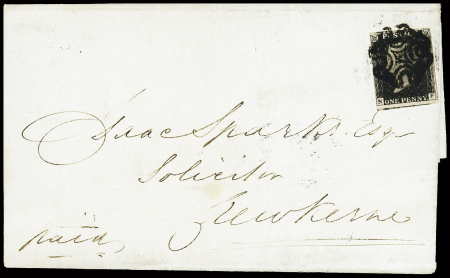 POSTAGE
N ONE PENNY F
Isaac Sparks Esq
Solicitor
Crewkerne
paid